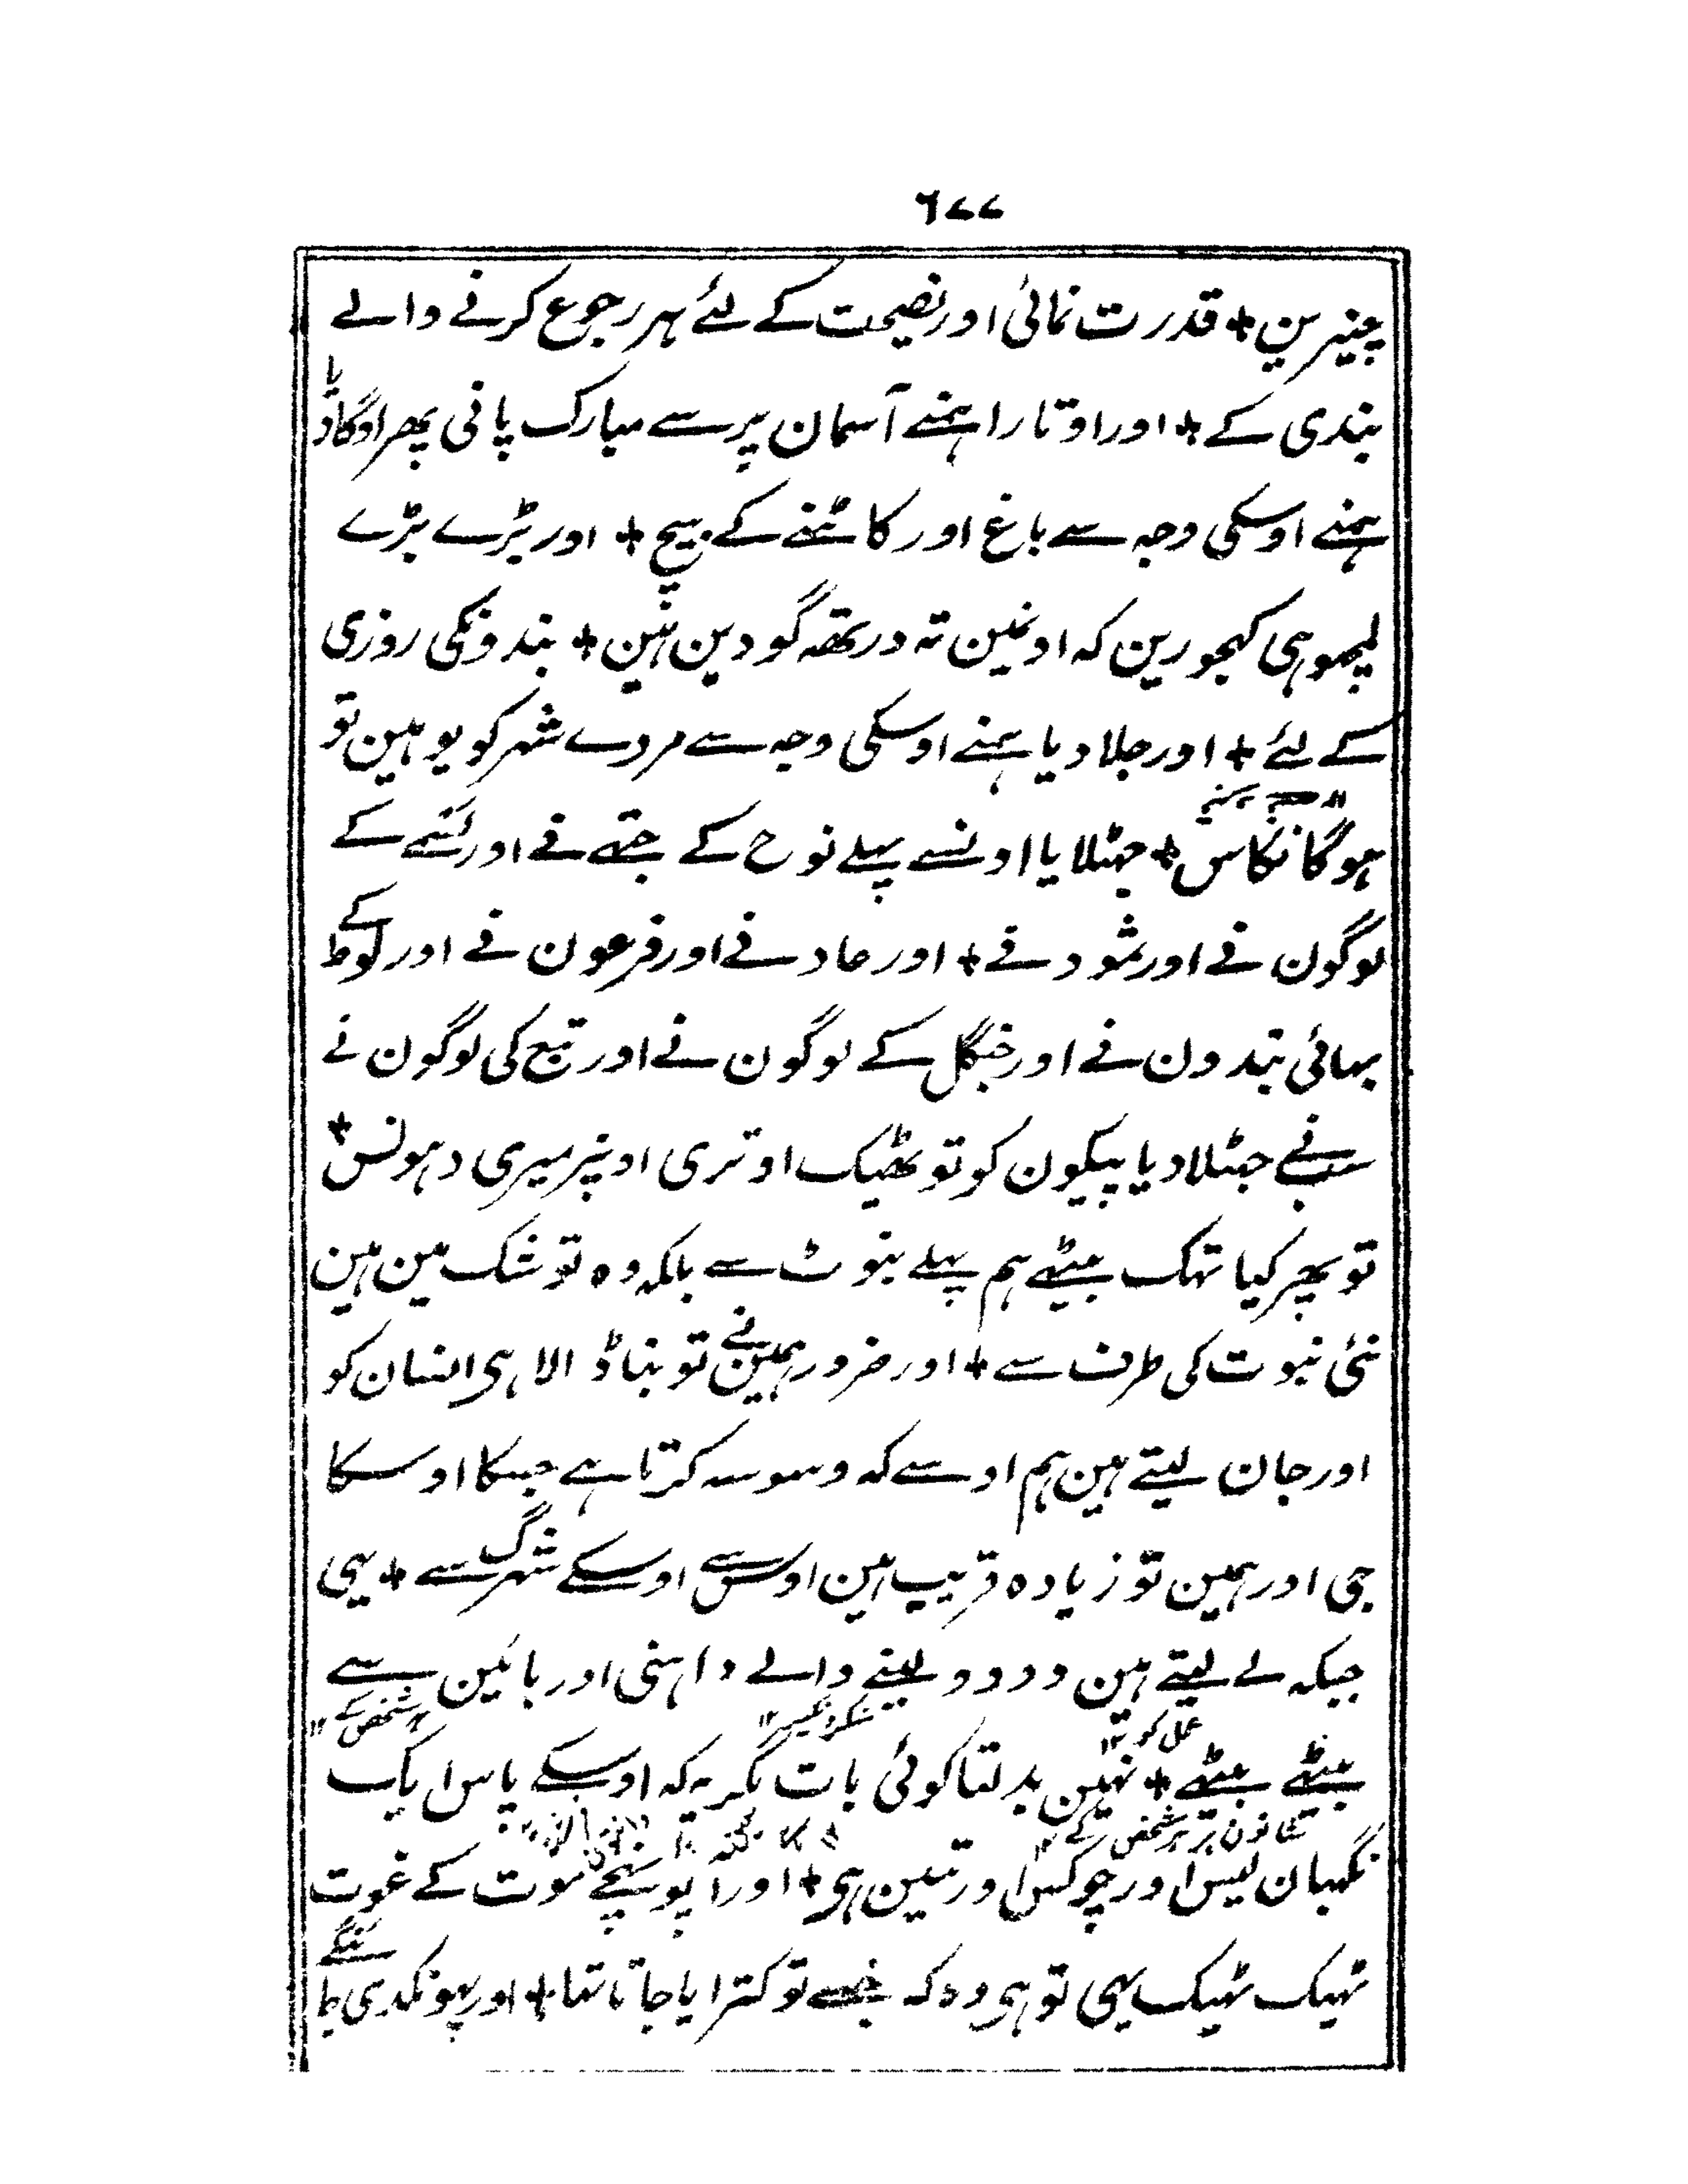 ٦٧٧
چیزین + قدرت نمائی اور نصیحت کے لئے ہر رجوع کرنے والے
بندی کے + اور اوتارا ہمنے آسمان پر سے مبارک پانی پھر اوگا دیا
ہمنے اوسکی وجہ سے باغ اور کاٹنے کے بیج + اور بڑے بڑے
لمبو ہی کہجورین کہ اونمین تہ در تہہ گودین ہین + بندونکی روزی
کے لئے + اور جلا دیا ہمنے اوسکی وجہ سے مردے شہر کو یوہین تو
ہوگا نکاس + جہٹلایا اونسے پہلے نوح کے جتھے نے اور کنئے کے
لوگون نے اور ثمود نے + اور عاد نے اور فرعون نے اور لوط کے
بہائی بندون نے اور جنگل کے لوگون نے اور تبع کی لوگون نے
سبنے جہٹلا دیا پیکون کو تو ٹھیک اوتری اونپر میری دہونس +
تو پھر کیا تہک بیٹھے ہم پہلے بنوٹ سے بلکہ وہ تو شک مین ہین
نئی نبوت کی طرف سے + اور ضرور ہمین نے تو بنا ڈالا ہی انسان کو
اور جان لیتے ہین ہم اوسے کہ وسوسہ کرتا ہے جسکا اوسکا
جی اور ہمین تو زیادہ قریب ہین اوس سے اوسکے شہرگ سے + یہی
جبکہ لے لیتے ہین دو دو لینے والے داہنی اور بائین سے
عمل کو ۱۲ منکر نکیر ۱۲ شخص کے ۱۲
بیٹھے بیٹھے + نہین بدلتا کوئی بات مگر یہ کہ اوسکے پاس ایک
شانون پر ہر شخص کے ۱۲
نگہبان لیس اور چوکس اور تمین ہی + اور آ پوہنچے موت کے غوت
ٹہیک ٹہیک یہی تو ہی وہ کہ جسے تو کترایا جاتا تہا + اور پہونکدی جائنگے